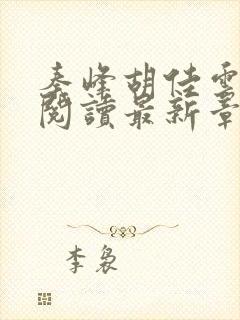 秦峰胡佳雲
閱讀最新章
李裊